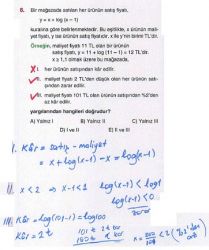 6. Bir mağazada satılan her ürünün satış fiyatı,
y = x + log (x – 1)
kuralına göre belirlenmektedir. Bu eşitlikte, x ürünün maliyet fiyatı, y ise ürünün satış fiyatıdır. x ile y'nin birimi TL'dir.
Örneğin, maliyet fiyatı 11 TL olan bir ürünün
satış fiyatı, y = 11 + log (11 – 1) = 12 TL'dir.
x ≥ 1,1 olmak üzere bu mağazada,
I. her ürünün satışından kâr edilir.
II. maliyet fiyatı 2 TL'den düşük olan her ürünün satışından zarar edilir.
III. maliyet fiyatı 101 TL olan ürünün satışından %2'den az kâr edilir.
yargılarından hangileri doğrudur?
A) Yalnız I B) Yalnız II C) Yalnız III
D) I ve II E) II ve III
I. Kâr = satış - maliyet
= x + log(x-1) - x = log(x-1)
II. x < 2 → x-1 < 1 log(x-1) < log1
log(x-1) < 0
zarar
III. Kâr = log(101-1) = log100
Kâr = 2 ₺